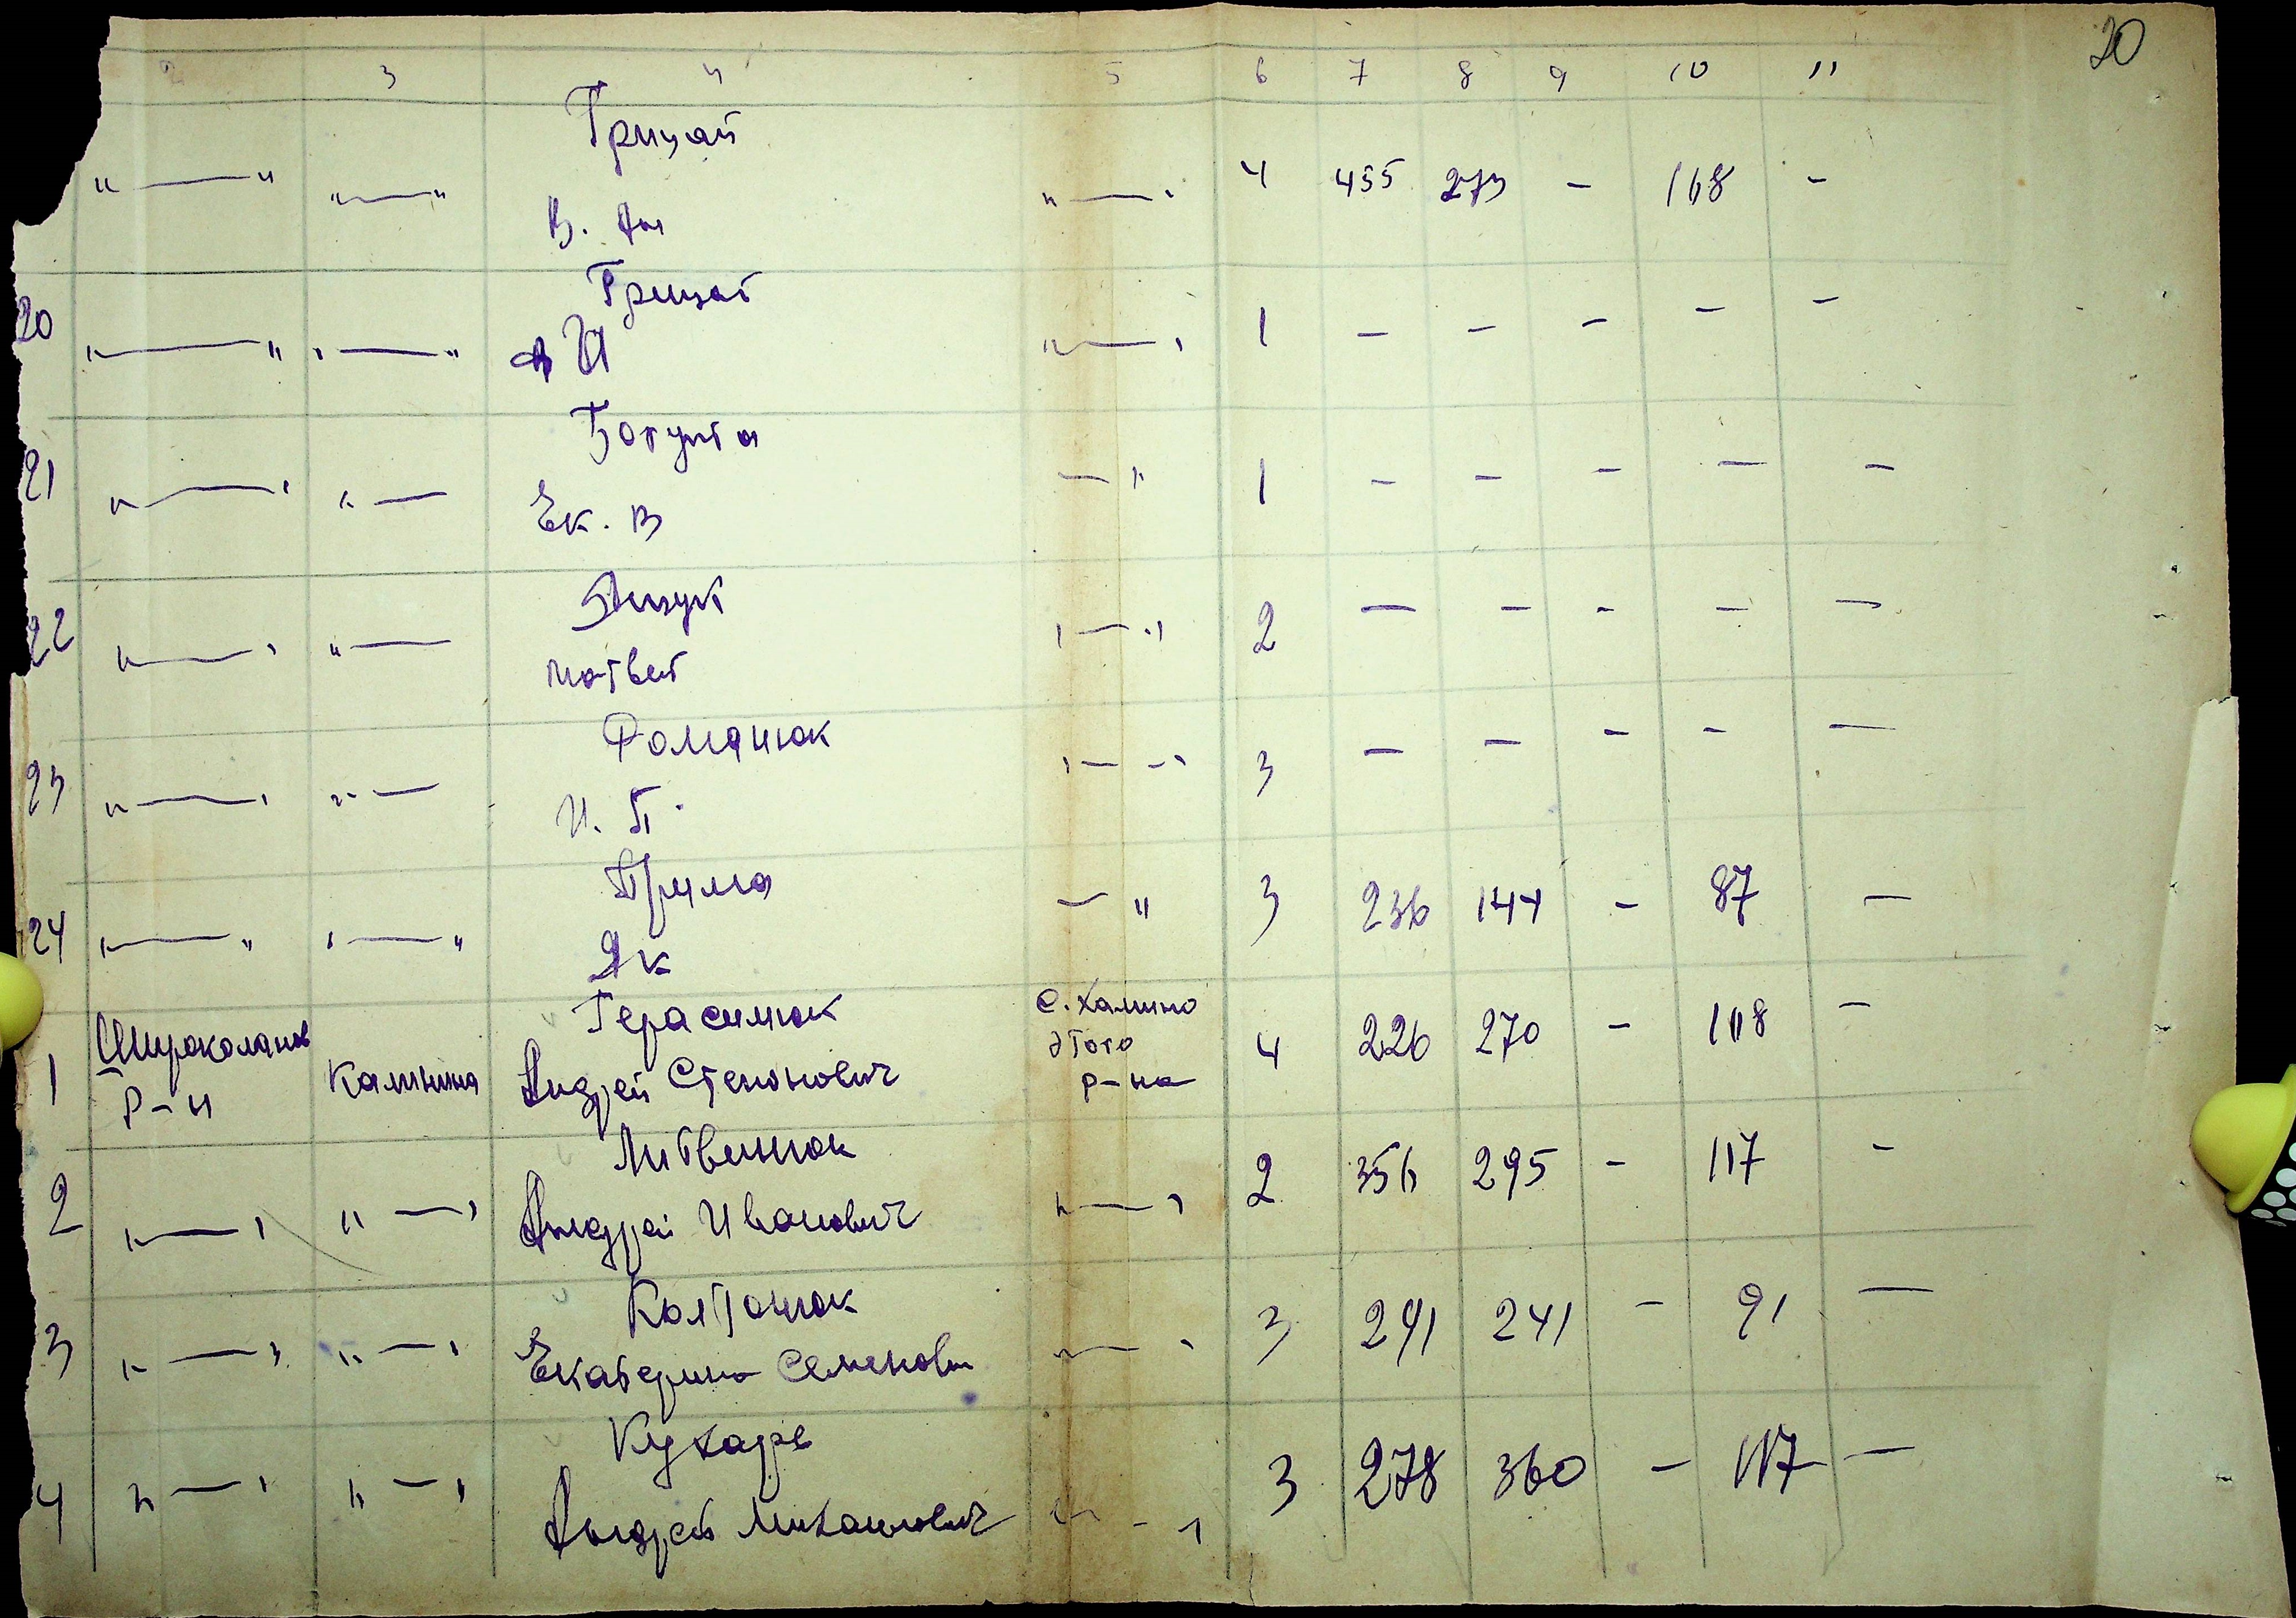 20
2 3 4 5 6 7 8 9 10 11
Грицай
" — " " — " " — " 4 455 273 - 168 -
В.
20 Грицай
" — " " — " И " — " 1 - - - - -
21
" — " " — Ек. В — " 1 - - - - -
22 Ящук
" — " " — Матвей " — " 2 - - - - -
23 Романюк
" — " " — И. П. " — " 3 - - - - -
Прима
24 " — " " — " Як — " 3 236 144 - 87 -
Герасимюк
1 Широколанов Калинина Андрей Степанович С. Калино 4 226 270 - 108 -
р-н этого
р-на
Литвинюк
2 " — " " — " Андрей Иванович " — " 2 356 295 - 117 -
Колтонюк
3 " — " " — " Екатерина Семеновн " — " 3 241 241 - 91 -
Кухарь
4 " — " " — " Андрей Михайлович " - " 3 278 360 - 117 -